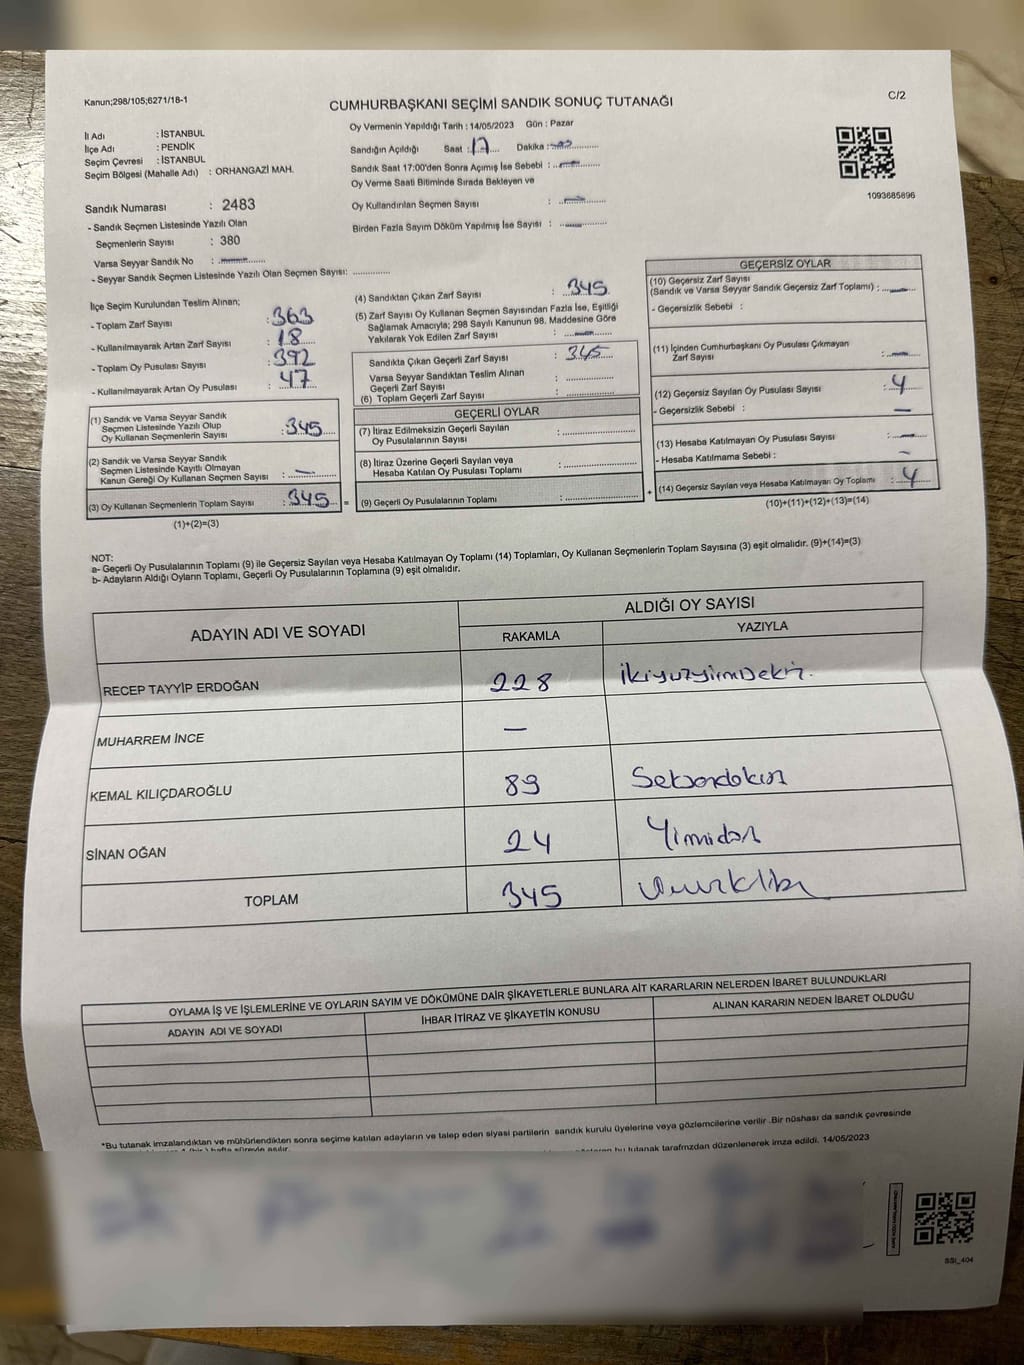 Kanun;298/105;6271/18-1
CUMHURBAŞKANI SEÇİMİ SANDIK SONUÇ TUTANAĞI
C/2
İl Adı : İSTANBUL
İlçe Adı : PENDİK
Seçim Çevresi : İSTANBUL
Seçim Bölgesi (Mahalle Adı) : ORHANGAZİ MAH.
Sandık Numarası : 2483
- Sandık Seçmen Listesinde Yazılı Olan
Seçmenlerin Sayısı : 380
Varsa Seyyar Sandık No :
- Seyyar Sandık Seçmen Listesinde Yazılı Olan Seçmen Sayısı:
Oy Vermenin Yapıldığı Tarih : 14/05/2023 Gün : Pazar
Sandığın Açıldığı Saat : 17 Dakika :
Sandık Saat 17:00'den Sonra Açımış İse Sebebi :
Oy Verme Saati Bitiminde Sırada Bekleyen ve
Oy Kullandırılan Seçmen Sayısı :
Birden Fazla Sayım Döküm Yapılmış İse Sayısı :
1093685896
İlçe Seçim Kurulundan Teslim Alınan;
- Toplam Zarf Sayısı : 363
- Kullanılmayarak Artan Zarf Sayısı : 18
- Toplam Oy Pusulası Sayısı : 392
- Kullanılmayarak Artan Oy Pusulası : 47
(1) Sandık ve Varsa Seyyar Sandık
Seçmen Listesinde Yazılı Olup
Oy Kullanan Seçmenlerin Sayısı : 345
(2) Sandık ve Varsa Seyyar Sandık
Seçmen Listesinde Kayıtlı Olmayan
Kanun Gereği Oy Kullanan Seçmen Sayısı : —
(3) Oy Kullanan Seçmenlerin Toplam Sayısı : 345 =
(1)+(2)=(3)
(4) Sandıktan Çıkan Zarf Sayısı : 345
(5) Zarf Sayısı Oy Kullanan Seçmen Sayısından Fazla İse, Eşitliği
Sağlamak Amacıyla; 298 Sayılı Kanunun 98. Maddesine Göre
Yakılarak Yok Edilen Zarf Sayısı :
Sandıkta Çıkan Geçerli Zarf Sayısı : 345
Varsa Seyyar Sandıktan Teslim Alınan
Geçerli Zarf Sayısı :
(6) Toplam Geçerli Zarf Sayısı :
GEÇERLİ OYLAR
(7) İtiraz Edilmeksizin Geçerli Sayılan
Oy Pusulalarının Sayısı :
(8) İtiraz Üzerine Geçerli Sayılan veya
Hesaba Katılan Oy Pusulası Toplamı :
(9) Geçerli Oy Pusulalarının Toplamı : +
GEÇERSİZ OYLAR
(10) Geçersiz Zarf Sayısı
(Sandık ve Varsa Seyyar Sandık Geçersiz Zarf Toplamı) :
- Geçersizlik Sebebi :
(11) İçinden Cumhurbaşkanı Oy Pusulası Çıkmayan
Zarf Sayısı :
(12) Geçersiz Sayılan Oy Pusulası Sayısı : 4
- Geçersizlik Sebebi : —
(13) Hesaba Katılmayan Oy Pusulası Sayısı :
- Hesaba Katılmama Sebebi : —
(14) Geçersiz Sayılan veya Hesaba Katılmayan Oy Toplamı : 4
(10)+(11)+(12)+(13)=(14)
NOT:
a- Geçerli Oy Pusulalarının Toplamı (9) ile Geçersiz Sayılan veya Hesaba Katılmayan Oy Toplamı (14) Toplamları, Oy Kullanan Seçmenlerin Toplam Sayısına (3) eşit olmalıdır. (9)+(14)=(3)
b- Adayların Aldığı Oyların Toplamı, Geçerli Oy Pusulalarının Toplamına (9) eşit olmalıdır.
ADAYIN ADI VE SOYADI
ALDIĞI OY SAYISI
RAKAMLA YAZIYLA
RECEP TAYYİP ERDOĞAN 228
MUHARREM İNCE —
KEMAL KILIÇDAROĞLU 89
SİNAN OĞAN 24
TOPLAM 345
OYLAMA İŞ VE İŞLEMLERİNE VE OYLARIN SAYIM VE DÖKÜMÜNE DAİR ŞİKAYETLERLE BUNLARA AİT KARARLARIN NELERDEN İBARET BULUNDUKLARI
ADAYIN ADI VE SOYADI İHBAR İTİRAZ VE ŞİKAYETİN KONUSU ALINAN KARARIN NEDEN İBARET OLDUĞU
*Bu tutanak imzalandıktan ve mühürlendikten sonra seçime katılan adayların ve talep eden siyasi partilerin sandık kurulu üyelerine veya gözlemcilerine verilir .Bir nüshası da sandık çevresinde
bu tutanak tarafımızdan düzenlenerek imza edildi. 14/05/2023
SSI_404